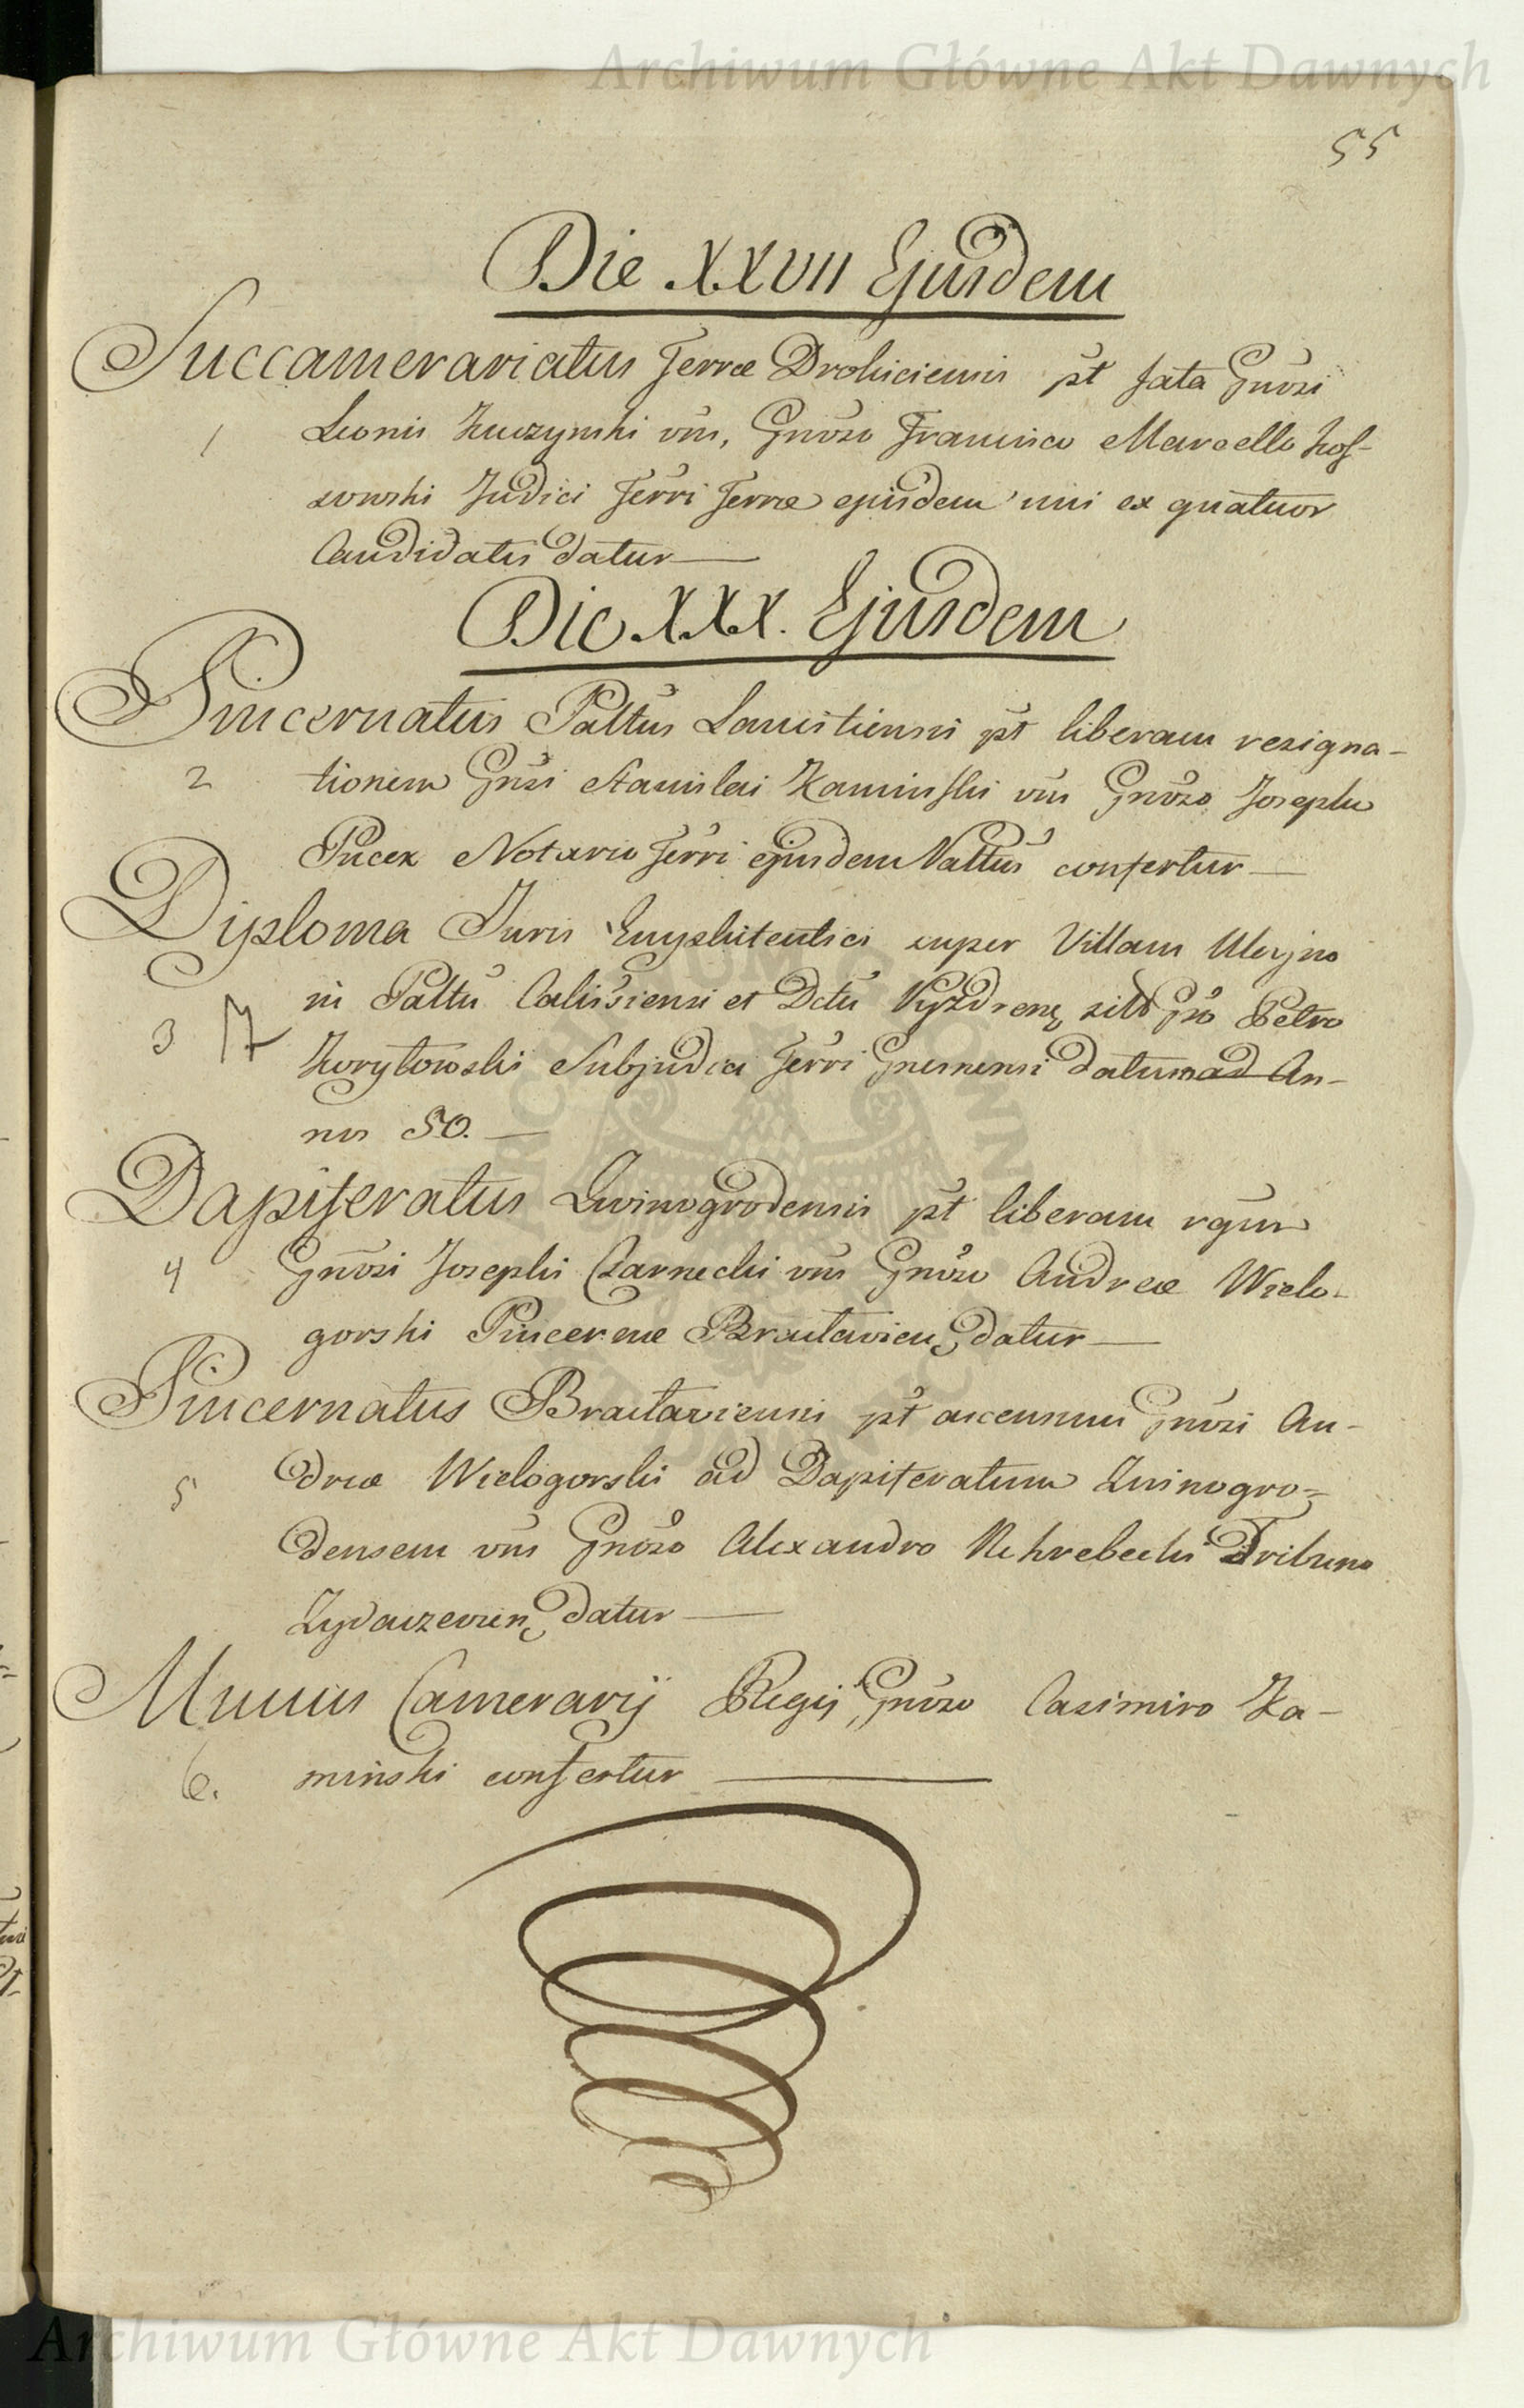 Archiwum Główne Akt Dawnych
55
Die XXVII Ejusdem
Succamerariatus Terræ Drohiciensis pt fata Gnosi
1 Leonis Kuczynski vm, Gnoso Francisco Marcello Kos-
sowski Judici Terri Terræ ejusdem uni ex quatuor
Candidatis datur —
Die XXX. Ejusdem
Pincernatus Palltus Lanistiensis pt liberam resigna-
2 tionem Gnsi Stanislai Kaminski vm Gnoso Josepho
Pucex Notario Terri ejusdem Palltus confertur —
Diploma Juris Emphiteutici super Villam Uleyno
3 in Palltu Calissiensi et Dctu Pyzdren sitt Gso Petro
Korytowski Subjudici Terri Gnesnensi datum ad An-
nos 50. —
Dapiferatus Zwinogrodensis pt liberam rgnm
4 Gnosi Josephi Czarnecki vm Gnoso Andreæ Wielo-
gorski Pincernæ Braclavien datur —
Pincernatus Braclaviensis pt ascensum Gnosi An-
5 dreæ Wielogorski ad Dapiferatum Zwinogro-
densem vm Gnoso Alexandro Rehrebecki Tribuno
Zydaczevien datur —
Munus Camerarij Regij, Gnoso Casimiro Ka-
6. minski confertur —
Archiwum Główne Akt Dawnych